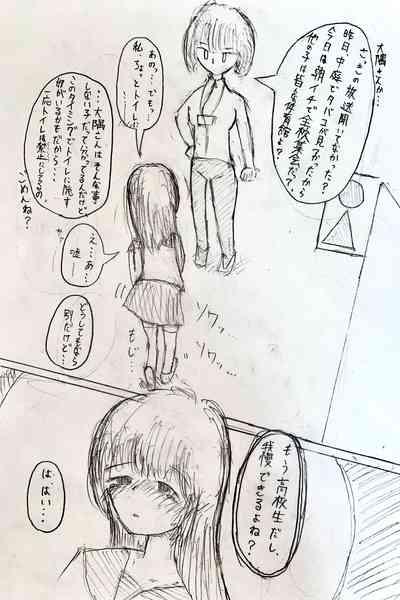 大隅さんか…
さっきの放送聞いてなかった？
昨日、中庭でタバコが見つかったから
今日は朝イチで全校集会だって。
他の子は皆もう体育館よ？
あのっ…でも…
私…ちょっとトイレに…
…大隅さんはそんな事
しない子だって分かってるんだけど
このタイミングでトイレに隠す
子がいるかもだから…
一応トイレは禁止にしてるの。
ごめんね？
え…あ…
嘘…
どうしてもなら
別だけど…
ソワッ…
ソワッ…
もじ…
もう高校生だし、
我慢できるよね？
は、はい…